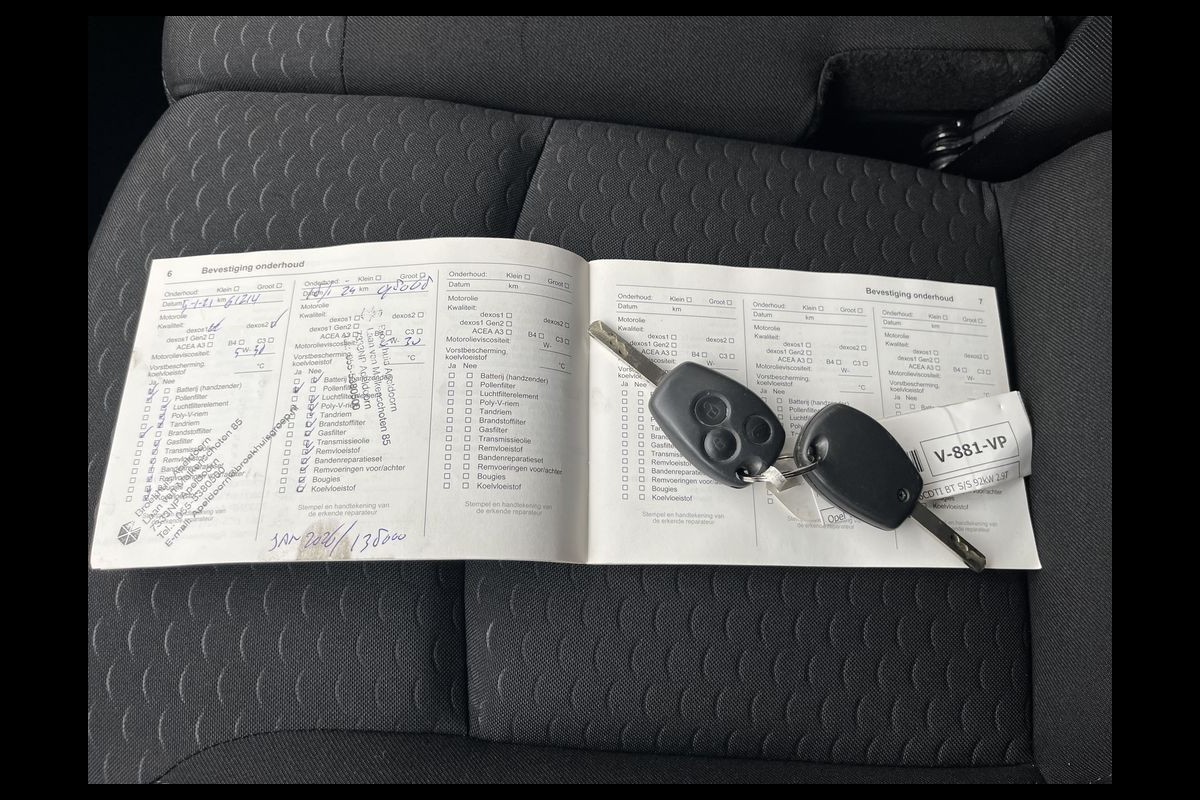 6 Bevestiging onderhoud
Onderhoud: Klein Groot
Datum 5-1-21 km 61214
Motorolie
Kwaliteit:
dexos1 dexos2
dexos1 Gen2
ACEA A3 B4 C3
Motorolieviscositeit: 5W-30
Vorstbescherming koelvloeistof °C
Ja Nee
Batterij (handzender)
Pollenfilter
Luchtfilterelement
Poly-V-riem
Tandriem
Brandstoffilter
Gasfilter
Transmissieolie
Remvloeistof
Bandenreparatieset
Laan van Malkenschoten 85
Onderhoud: Klein Groot
Datum 24 km 98000
Motorolie
Kwaliteit:
dexos1 dexos2
dexos1 Gen2
ACEA A3 B4 C3
Motorolieviscositeit: W- 30
Vorstbescherming koelvloeistof °C
Ja Nee
Batterij (handzender)
Pollenfilter
Luchtfilterelement
Poly-V-riem
Tandriem
Brandstoffilter
Gasfilter
Transmissieolie
Remvloeistof
Bandenreparatieset
Remvoeringen voor/achter
Bougies
Koelvloeistof
Stempel en handtekening van
de erkende reparateur
Laan van Malkenschoten 85
JAN 2026/138000
Onderhoud: Klein Groot
Datum km
Motorolie
Kwaliteit:
dexos1 dexos2
dexos1 Gen2
ACEA A3 B4 C3
Motorolieviscositeit: W-
Vorstbescherming
koelvloeistof °C
Ja Nee
Batterij (handzender)
Pollenfilter
Luchtfilterelement
Poly-V-riem
Tandriem
Brandstoffilter
Gasfilter
Transmissieolie
Remvloeistof
Bandenreparatieset
Remvoeringen voor/achter
Bougies
Koelvloeistof
Stempel en handtekening van
de erkende reparateur
Bevestiging onderhoud 7
Onderhoud: Klein Groot
Datum km
Motorolie
Kwaliteit:
dexos1 dexos2
dexos1 Gen2
B4 C3
W-
°C
Stempel en handtekening van
de erkende reparateur
Onderhoud: Klein Groot
Datum km
Motorolie
Kwaliteit:
dexos1 dexos2
dexos1 Gen2
ACEA A3 B4 C3
Motorolieviscositeit: W-
Vorstbescherming
koelvloeistof °C
Ja Nee
Batterij (handzender)
Onderhoud: Klein Groot
Datum km
Motorolie
Kwaliteit:
dexos1 dexos2
dexos1 Gen2
ACEA A3 B4 C3
Motorolieviscositeit: W-
Vorstbescherming
koelvloeistof °C
Ja Nee
V-881-VP
CDTI BT S/S 92KW 2.9T
Opel